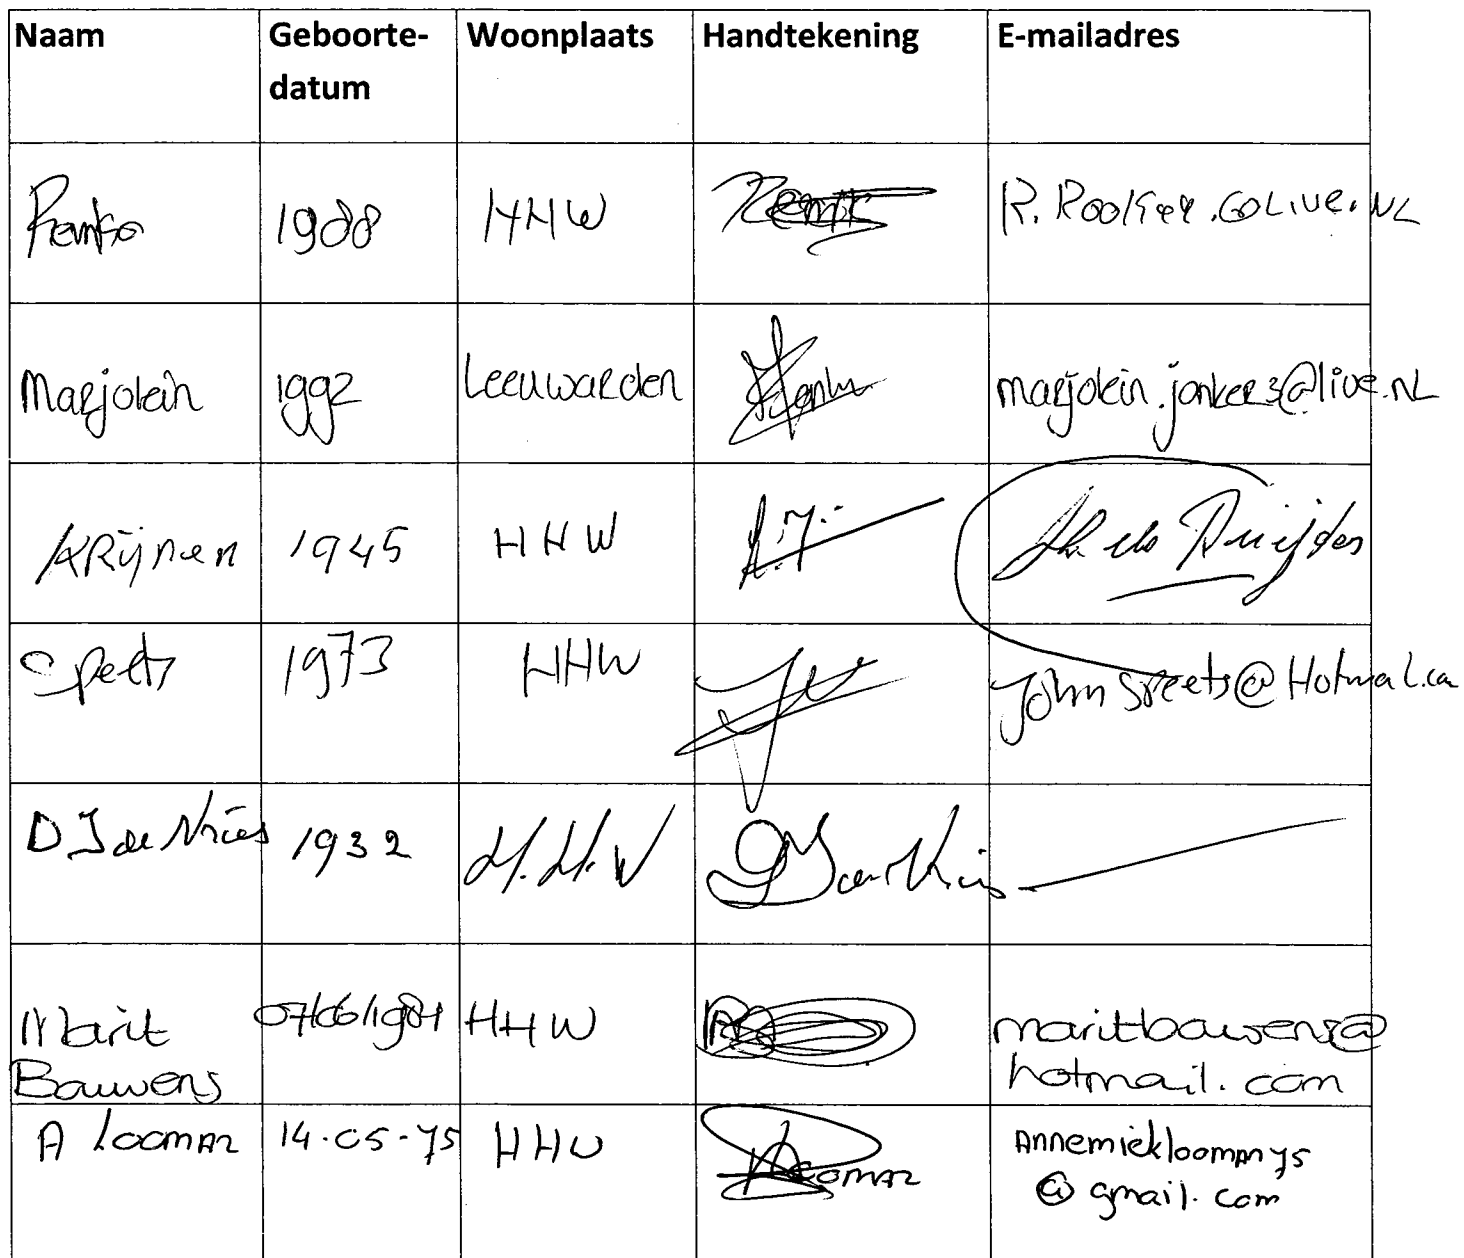 Naam Geboorte- Woonplaats Handtekening E-mailadres
datum
Remko 1988 HHW R. Rooker.@Live.NL
Marjolein 1992 Leeuwarden marjolein.jonker3@live.nl
KRijnen 1945 HHW
Speets 1973 HHW John Speets@Hotmal.com
D J de Vries 1932 H.H.W
Marit 07/06/1981 HHW maritbauwens@
Bauwens hotmail.com
A Looman 14-05-75 HHW Looman Annemieklooman75
@gmail.com